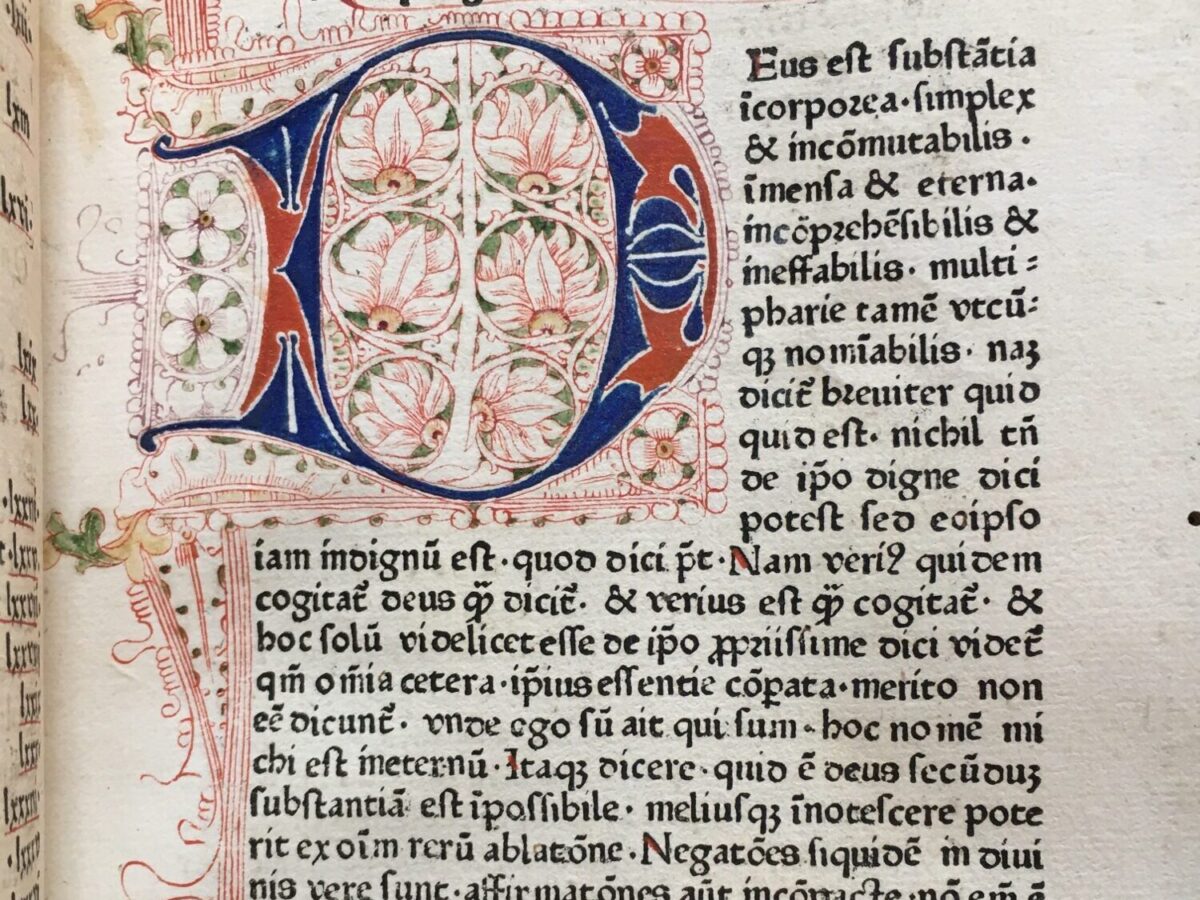 Eus est substãtia
ĩcorporea·simplex
& incõmutabilis.
ĩmensa & eterna·
incõp̱rehẽsibilis &
ineffabilis· multi:
pharie tamẽ vtcũ:
qꝫ nomĩabilis· naꝫ
dicit̃ breuiter quid
quid est· nichil tñ
de ip̃o digne dici
potest sed eoipso
iam indignũ est·quod dici p̃t·Nam veriꝰ quidem
cogitat̃ deus qꝙ̃ dicit̃· & verius est qꝙ̃ cogitat̃· &
hoc solũ videlicet esse de ip̃o ꝓpriissime dici videt̃
qm̃ om̃ia cetera·ip̃ius essentie cõꝑata·merito non
eẽ dicunt̃· vnde ego sũ ait qui sum·hoc nomẽ mi
chi est ineternũ·Itaqꝫ dicere·quid ẽ deus secũduꝫ
substantiã est ĩpossibile· meliusqꝫ ĩnotescere pote
rit ex oĩm rerũ ablatõne·Negatões siquidẽ in diui
nis vere sunt·affirmatõnes aũt incõpacte·nõ em̃ ẽ
lxii·
lxiii
lxix
lxx
·lxxiiii
lxxv
lxxvi